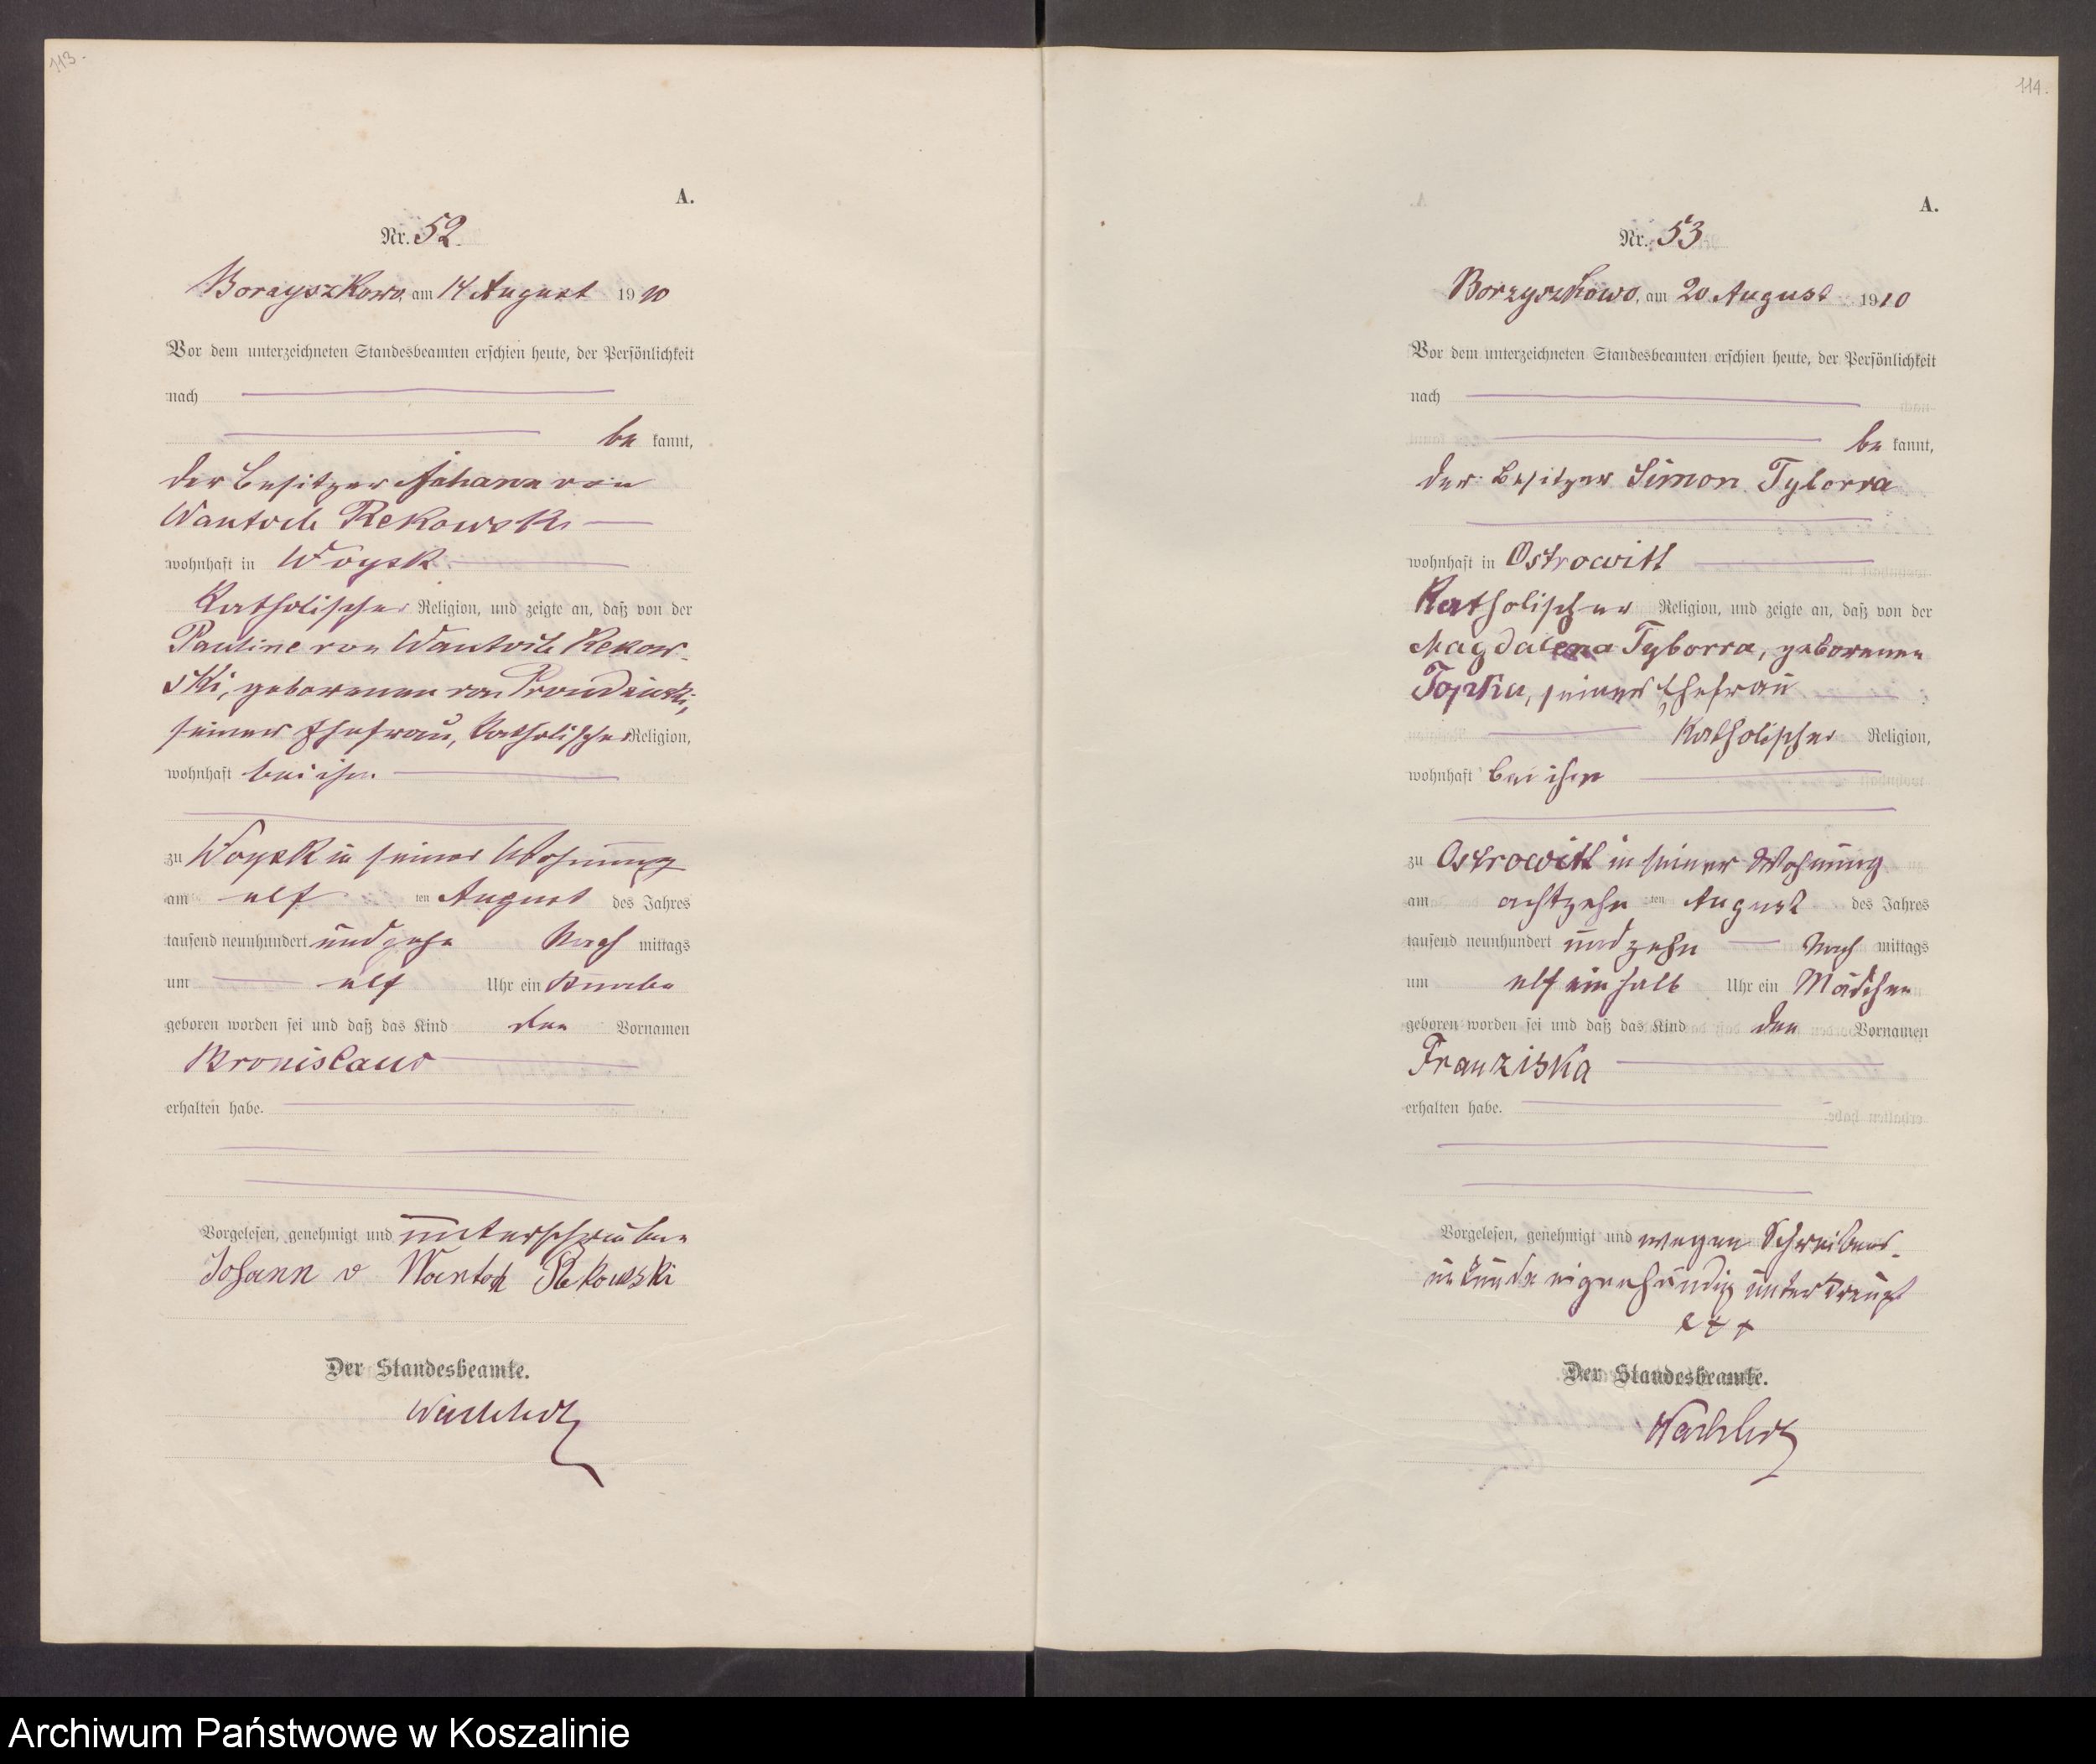 113.
A.
Nr. 52.
Borzyszkowo, am 14 August 1910
Vor dem unterzeichneten Standesbeamten erschien heute, der Persönlichkeit
nach
be kannt,
der Besitzer Johann von
Wantoch Rekowski
wohnhaft in Woysk
Katholischer Religion, und zeigte an, daß von der
Pauline von Wantoch Rekow-
ski, geborenen von Prondzinski,
seiner Ehefrau, Katholischer Religion,
wohnhaft bei ihm
zu Woysk in seiner Wohnung
am elf ten August des Jahres
tausend neunhundert und zehn Nach mittags
um elf Uhr ein Knabe
geboren worden sei und daß das Kind den Vornamen
Bronislaus
erhalten habe.
Vorgelesen, genehmigt und unterschrieben
Johann v Wantoch Rekowski
Der Standesbeamte.
114.
A.
Nr. 53
Borzyszkowo, am 20 August 1910
Vor dem unterzeichneten Standesbeamten erschien heute, der Persönlichkeit
nach
be kannt,
der Besitzer Simon Tyborra
wohnhaft in Ostrowitt
Katholischer Religion, und zeigte an, daß von der
Magdalena Tyborra, geborenen
seiner Ehefrau
Katholischer Religion,
wohnhaft bei ihm
zu Ostrowitt in seiner Wohnung
am achtzehn ten August des Jahres
tausend neunhundert und zehn Nach mittags
um elf ein halb Uhr ein Mädchen
geboren worden sei und daß das Kind den Vornamen
Franziska
erhalten habe.
Vorgelesen, genehmigt und wegen Schreibens-
unkunde eigenhändig unterkreuzt
+++
Der Standesbeamte.
Archiwum Państwowe w Koszalinie